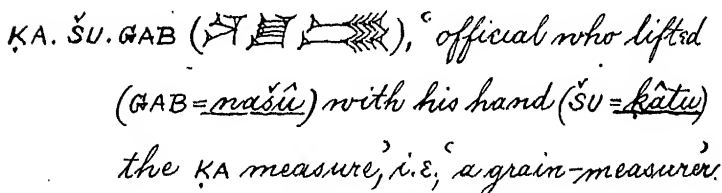 ḲA. ŠU. GAB (), ‘official who lifted
(GAB = našû) with his hand (ŠU = ḳâtu)
the ḲA measure,’ i.e., ‘a grain-measurer.’